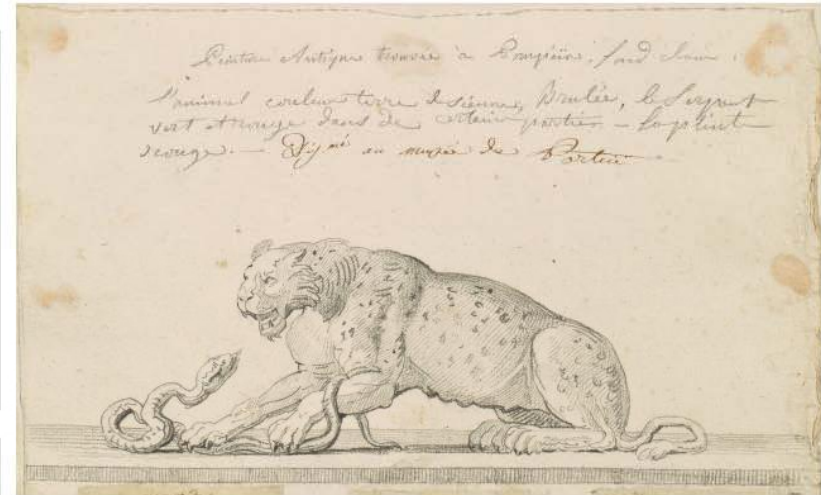 Peinture Antique trouvée à Pompeïa. fond
l'animal couleur terre de sienne Brulée, le Serpent
vert et rouge dans de certaines parties – la plinte
rouge. – au musée de Portici